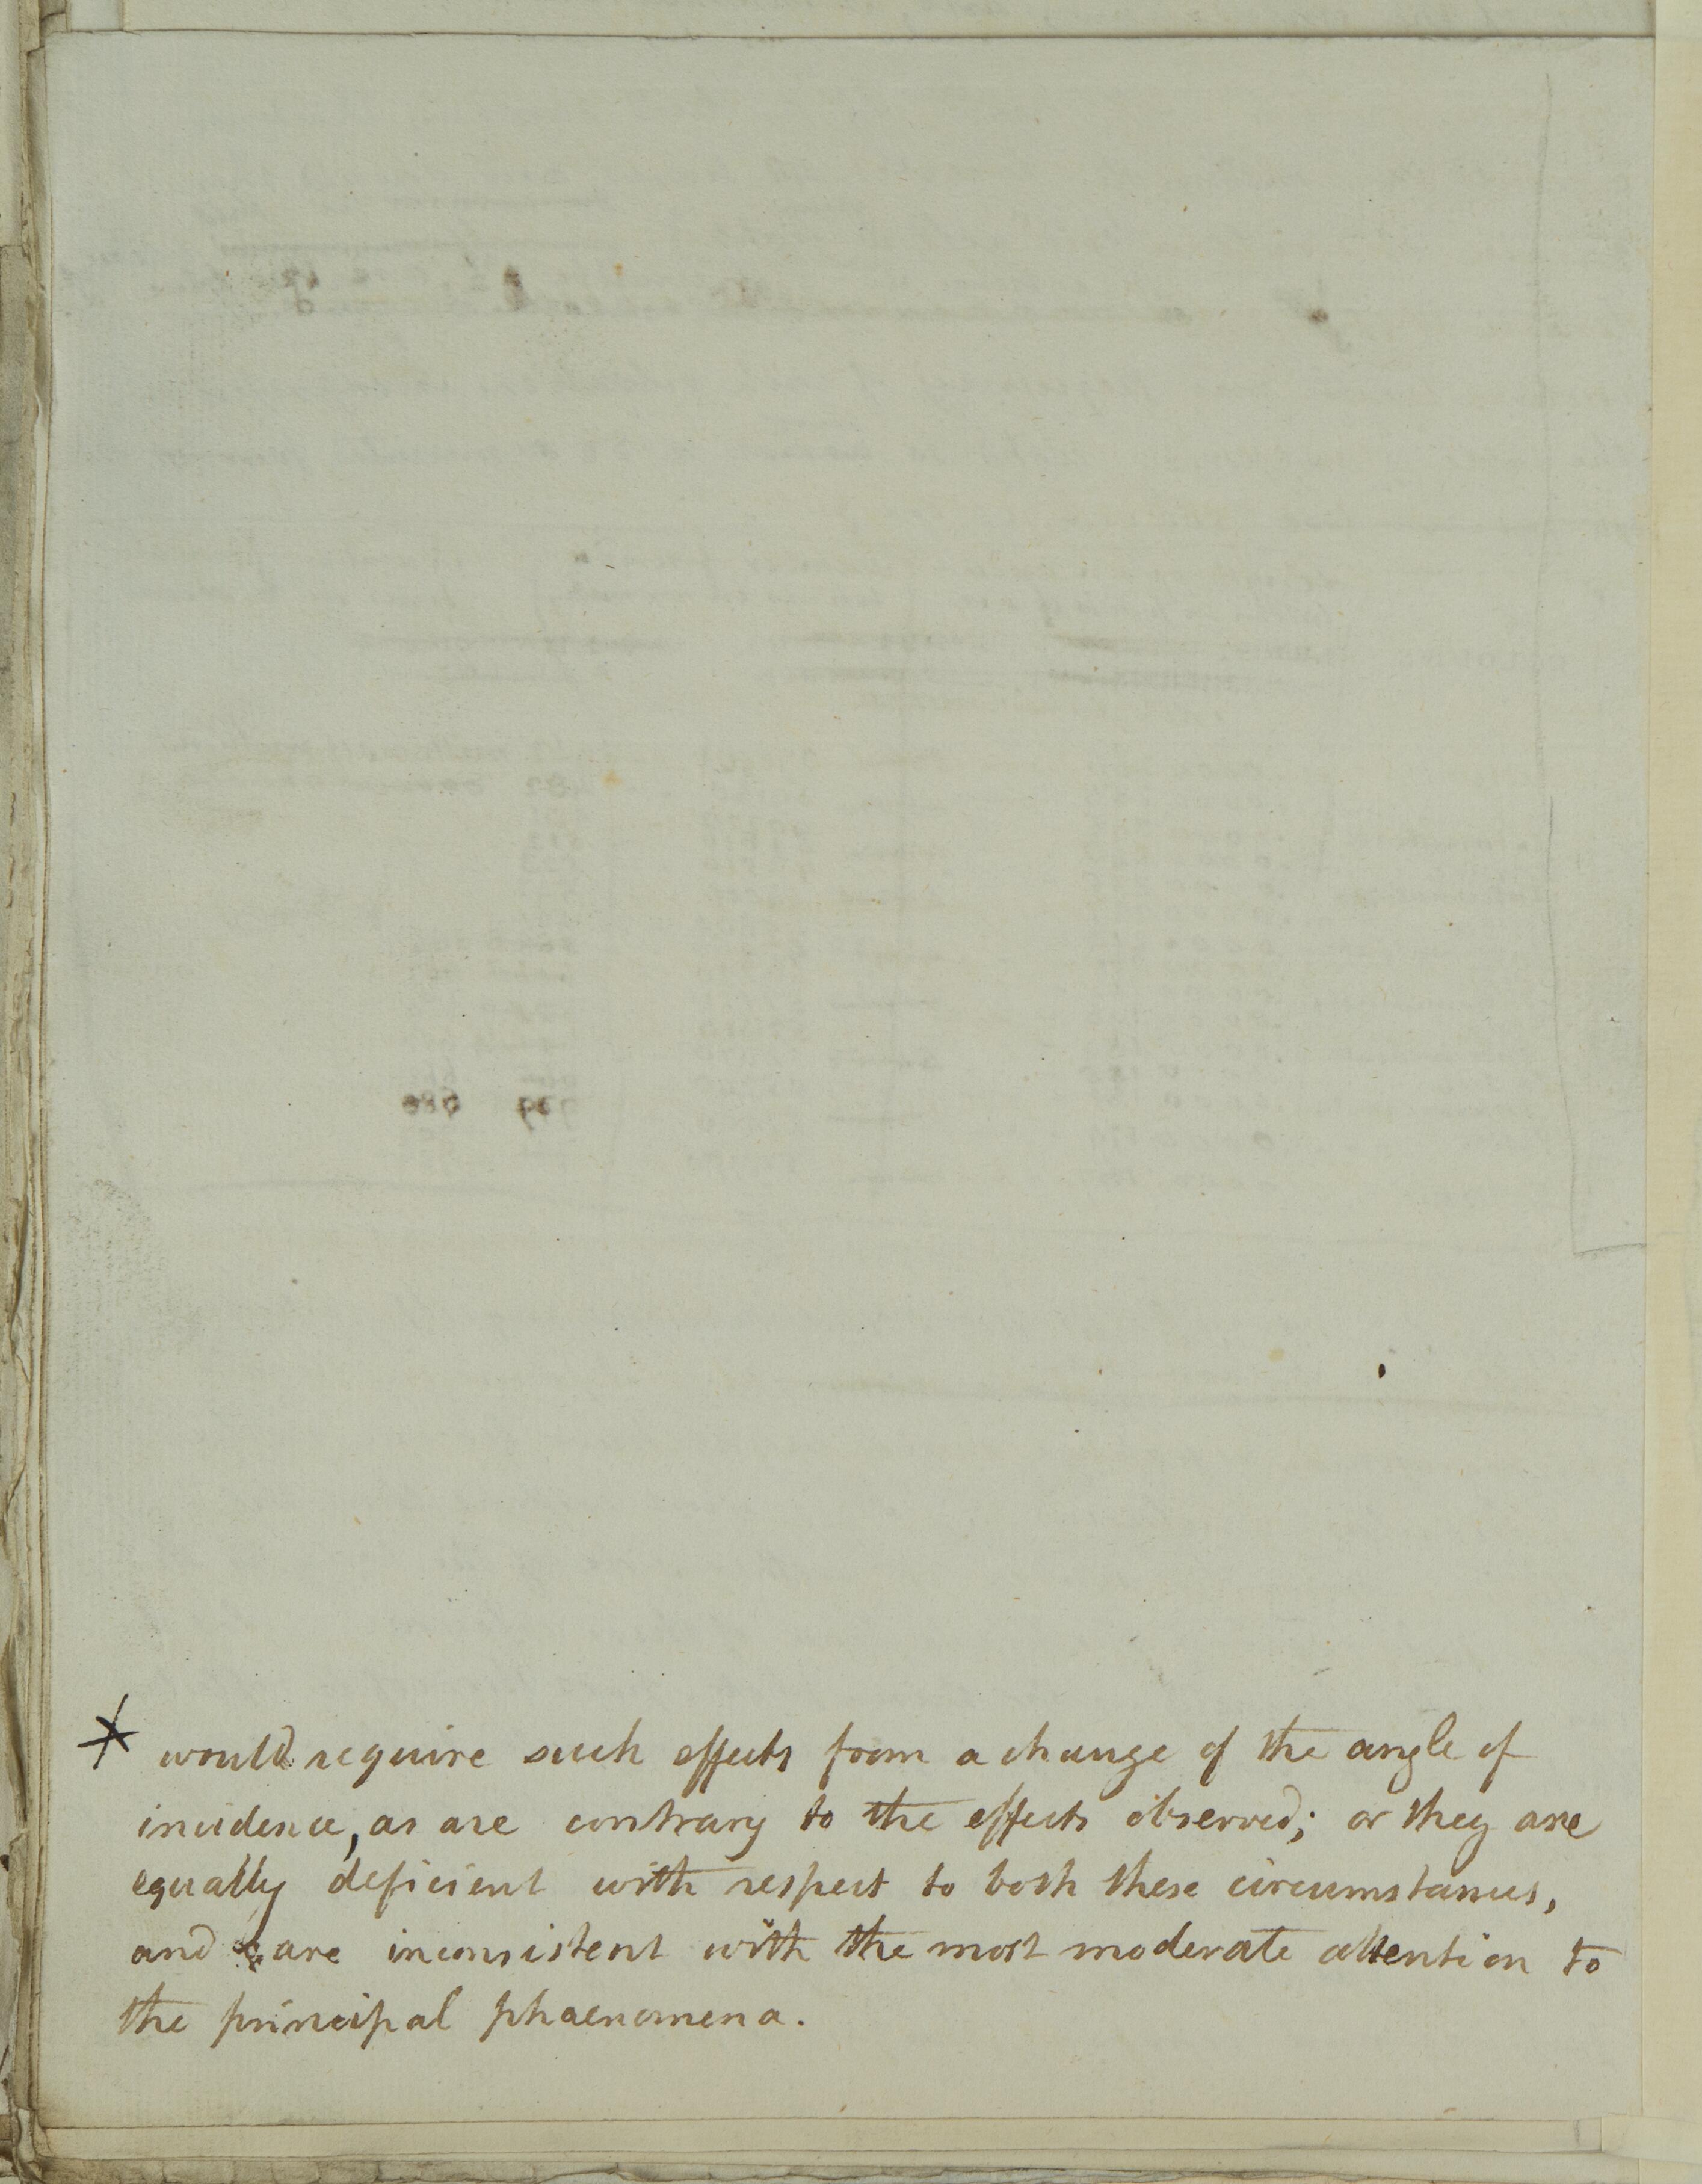 * would require such effects from a change of the angle of
incidence, as are contrary to the effects observed; or they are
equally deficient with respect to both these circumstances,
and are inconsistent with the most moderate attention to
the principal phaenomena.